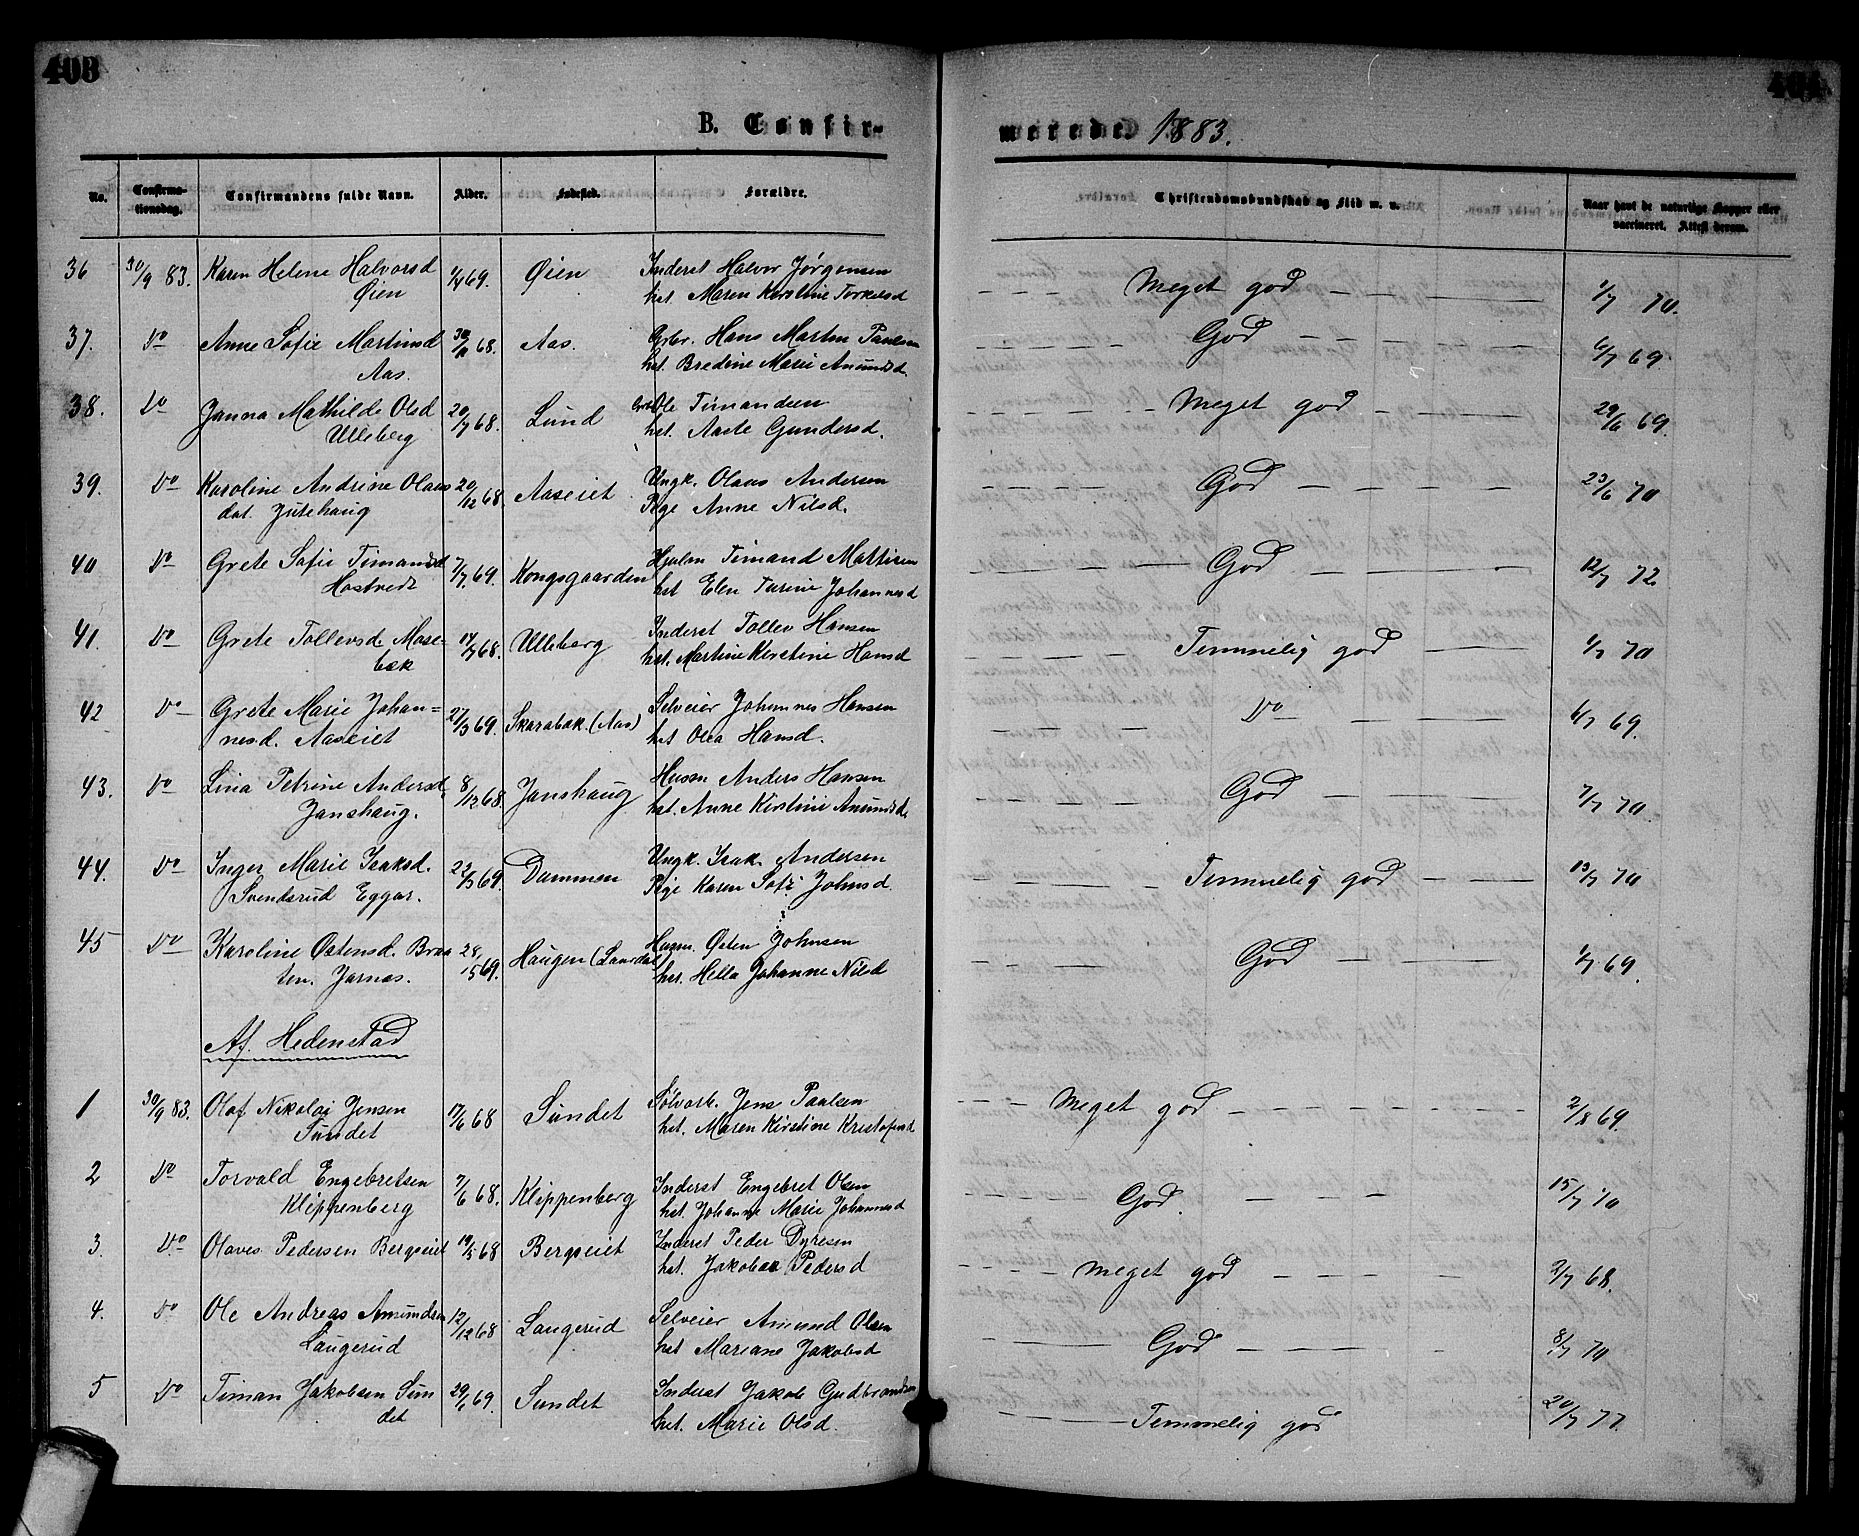 403
404
B. Confir-
merede 1883.
No.
Confirma-
tionsdag.
Confirmandens fulde Navn.
Alder.
Fødested.
Forældre.
Christendomskundskab og Flid m. v.
Naar havt de naturlige Kopper eller
vaccineret. Attest derom.
36 30/9 83. Karen Helene Halvorsd 69. Øien Inderst Halvor Jørgensen Meget god 1/7 70.
Øien het. Maren Kirstine Torkelsd
37. Do Anne Sofie Martinsd 68. Aas. Grbr. Hans Martin Paulsen God 6/7 69.
Aas. het. Bredine Marie Amundsd.
38. Do Janna Mathilde Olsd 20/7 68. Lund Ole Timandsen Meget god 29/6 69.
Ulleberg het. Aaste Gundersd.
39. Do Karoline Andrine Olaus 20/12 68. Aaseiet Ungk. Olaus Andersen God 23/6 70
dat. Jutehaug Pige Anne Nilsd.
40 Do Grete Sofie Timandsd 7/7 69. Kongsgaarden Hjulm Timand Mattisen God 12/7 72
Hostvedt het Elen Turine Johannesd
41. Do Grete Tollevsd. Mose- 14/7 68. Ulleberg Inderst Tollev Hansen Temmelig god 1/7 70
bæk het. Martine Kirstine Hansd
42 Do Grete Marie Johan= 27/3 69. Skarabæk (Aas) Selveier Johannes Hansen Do 6/7 69.
nesd. Aaseiet het Olea Hansd.
43. Do Lina Petrine Andersd. 8/12 68. Janshaug Husm Anders Hansen God 7/7 70.
Janshaug. het. Anne Kirstine Amundsd.
44. Do Inger Marie Isaksd. 22/3 69. Dammen Ungk. Isak Andersen Temmelig god 13/7 70
Svendsrud Eggar. Pige Karen Sofi Johnsd.
45 Do Karoline Østensd. Braa 28/5 69. Haugen (Laurdal) Husm. Østen Johnsen God 1/7 69.
ten. Jarnæs. het. Hella Johanne Nilsd
Af. Hedenstad
1 30/9 83. Olaf Nikolai Jensen 17/6 68 Sundet Sølvarb. Jens Paulsen Meget god 2/8 69.
Sundet het. Maren Kirstine Kristofersd
2 Do Torvald Engebretsen 7/6 68. Klippenberg Inderst Engebret Olsen God. 15/7 70
Klippenberg het. Johanne Marie Johannesd
3. Do Olaves Pedersen Bergseiet 19/5 68 Bergseiet Inderst Peder Dyresen Meget god 2/7 68.
het. Jakobea Pedersd
4. Do Ole Andreas Amundsen 12/12 68 Laugerud Selveier Amund Olsen God 8/7 70
Laugerud het Mariane Jakobsd
5 Do Timan Jakobsen Sun 29/1 69. Sundet Inderst Jakob Gudbrandsen Temmelig god 20/7 77.
det het. Marie Olsd.